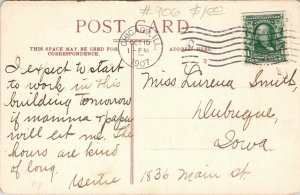 #906 $1.00
POST CARD
CHICAGO, ILL.
OCT 15
1 - PM
1907
THIS SPACE MAY BE USED FOR
CORRESPONDENCE.
ADDRESS HERE.
I expect to start
to work in this
building tomorrow
if mamma & papa
will let me. The
hours are kind
of long.
Bertie
Miss Lurena Smith,
Dubuque,
Iowa.
1836 Main St.